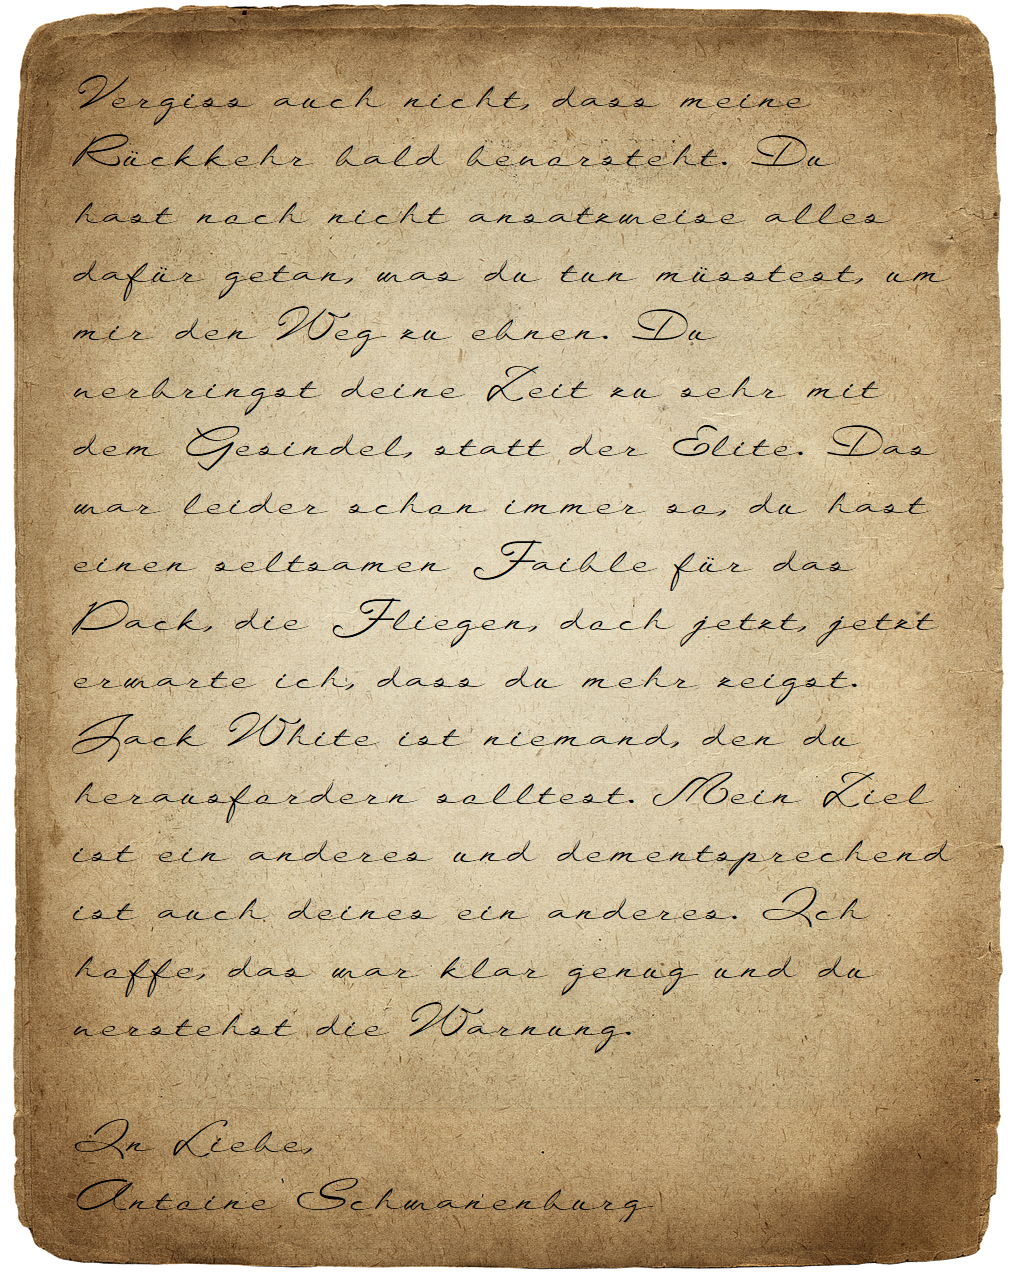 Vergiss auch nicht, dass meine
Rückkehr bald bevorsteht. Du
hast noch nicht ansatzweise alles
dafür getan, was du tun müsstest, um
mir den Weg zu ebnen. Du
verbringst deine Zeit zu sehr mit
dem Gesindel, statt der Elite. Das
war leider schon immer so, du hast
einen seltsamen Faible für das
Pack, die Fliegen, doch jetzt, jetzt
erwarte ich, dass du mehr zeigst.
Jack White ist niemand, den du
herausfordern solltest. Mein Ziel
ist ein anderes und dementsprechend
ist auch deines ein anderes. Ich
hoffe, das war klar genug und du
verstehst die Warnung.
In Liebe,
Antoine Schwanenburg